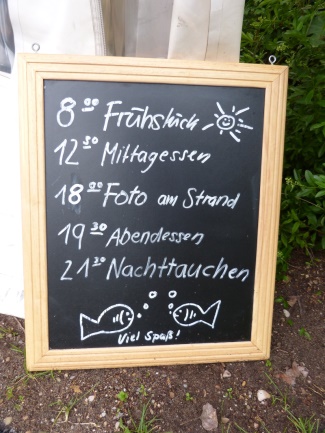 8 00 Frühstück
12 30 Mittagessen
18 00 Foto am Strand
19 30 Abendessen
21 30 Nachttauchen
Viel Spaß!